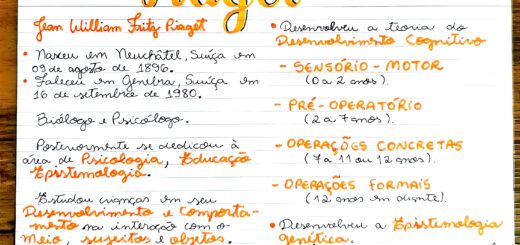 Piaget
Jean William Fritz Piaget
• Nasceu em Neuchâtel, Suíça em
09 de agosto de 1896.
• Faleceu em Genebra, Suíça em
16 de setembro de 1980.
Biólogo e Psicólogo.
Posteriormente se dedicou à
área de Psicologia, Educação
Epistemologia.
Estudou crianças em seu
Desenvolvimento e comporta-
mento na interação com o
Meio, sujeitos e objetos.
• Desenvolveu a teoria do
Desenvolvimento Cognitivo
- SENSÓRIO - MOTOR
(0 a 2 anos).
- PRÉ - OPERATÓRIO
(2 a 7 anos).
- OPERAÇÕES CONCRETAS
(7 a 11 ou 12 anos).
- OPERAÇÕES FORMAIS
(12 anos em diante).
• Desenvolveu a Epistemologia
Genética.